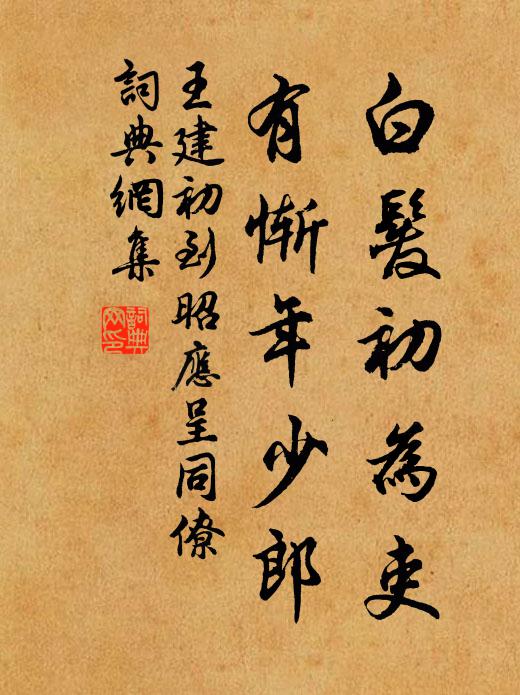 白髮初為吏
有慚年少郎
王建初到昭應呈同僚
詞典網集
詞典網印